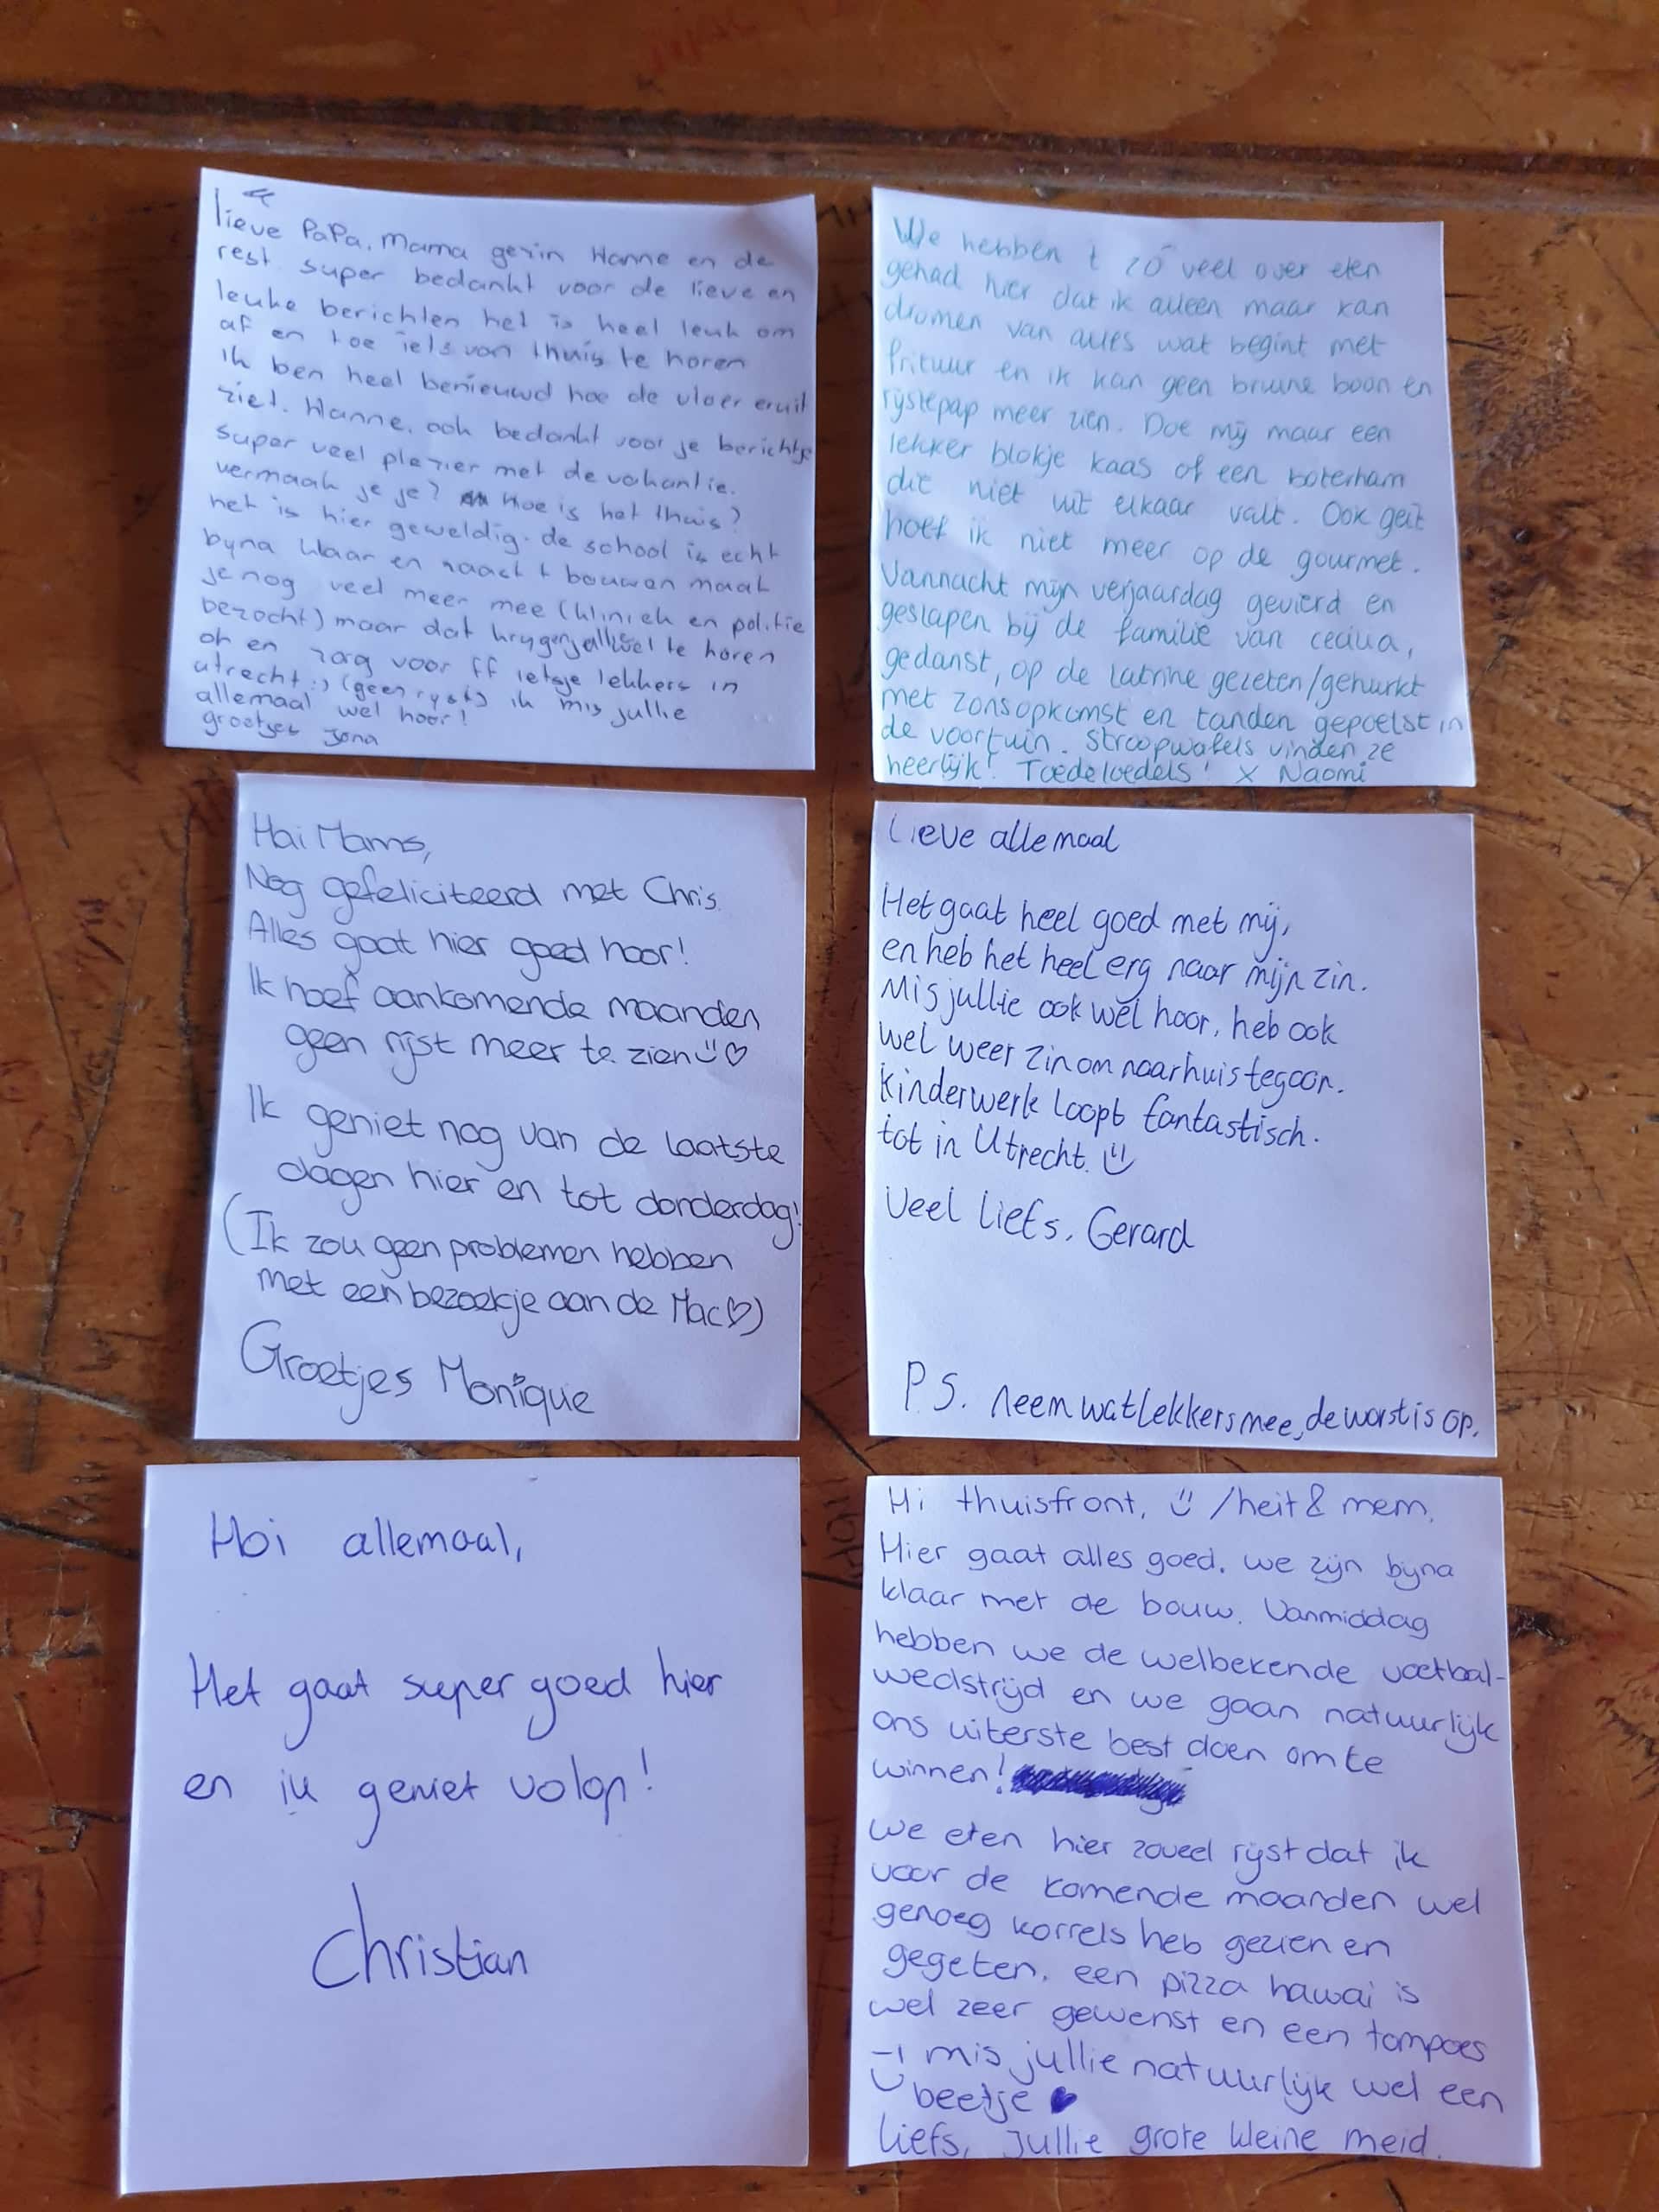 lieve PaPa, Mama gezin Hanne en de
rest super bedankt voor de lieve en
leuke berichten het is heel leuk om
af en toe iets van thuis te horen
Ik ben heel benieuwd hoe de vloer eruit
ziet. Hanne, ook bedankt voor je berichtje
super veel plezier met de vakantie.
vermaak je je? Hoe is het thuis?
het is hier geweldig. de school is echt
byna klaar en naast t bouwen maak
je nog veel meer mee (kliniek en politie
bezocht) maar dat krygen jullie wel te horen
oh en zorg voor ff ietsje lekkers in
utrecht :) (geen ryst) ik mis jullie
allemaal wel hoor!
groetjes Jona
We hebben t zó veel over eten
gehad hier dat ik alleen maar kan
dromen van alles wat begint met
frituur en ik kan geen bruine boon en
rijstepap meer zien. Doe mij maar een
lekker blokje kaas of een boterham
die niet uit elkaar valt. Ook geit
hoef ik niet meer op de gourmet.
Vannacht mijn verjaardag gevierd en
geslapen bij de familie van cecilia,
gedanst, op de latrine gezeten/gehurkt
met zonsopkomst en tanden gepoetst in
de voortuin. Stroopwafels vinden ze
heerlijk! Toedeloedels! x Naomi
Hai Mams,
Nog gefeliciteerd met Chris.
Alles gaat hier goed hoor!
Ik hoef aankomende maanden
geen rijst meer te zien ü ♡
Ik geniet nog van de laatste
dagen hier en tot donderdag!
(Ik zou geen problemen hebben
met een bezoekje aan de Mac♡)
Groetjes Monique
Lieve allemaal
Het gaat heel goed met mij,
en heb het heel erg naar mijn zin.
Mis jullie ook wel hoor, heb ook
wel weer zin om naar huis te gaan.
Kinderwerk loopt fantastisch.
tot in Utrecht. ü
Veel liefs, Gerard
P.S. neem wat lekkers mee, de worst is op.
Hoi allemaal,
Het gaat super goed hier
en ik geniet volop!
Christian
Hi thuisfront, ü /heit & mem,
Hier gaat alles goed. we zijn byna
klaar met de bouw. Vanmiddag
hebben we de welbekende voetbal-
wedstrijd en we gaan natuurlijk
ons uiterste best doen om te
winnen!
we eten hier zoveel rijst dat ik
voor de komende maanden wel
genoeg korrels heb gezien en
gegeten. een pizza hawai is
wel zeer gewenst en een tompoes
mis jullie natuurlijk wel een
beetje ♥
Liefs, Jullie grote kleine meid.